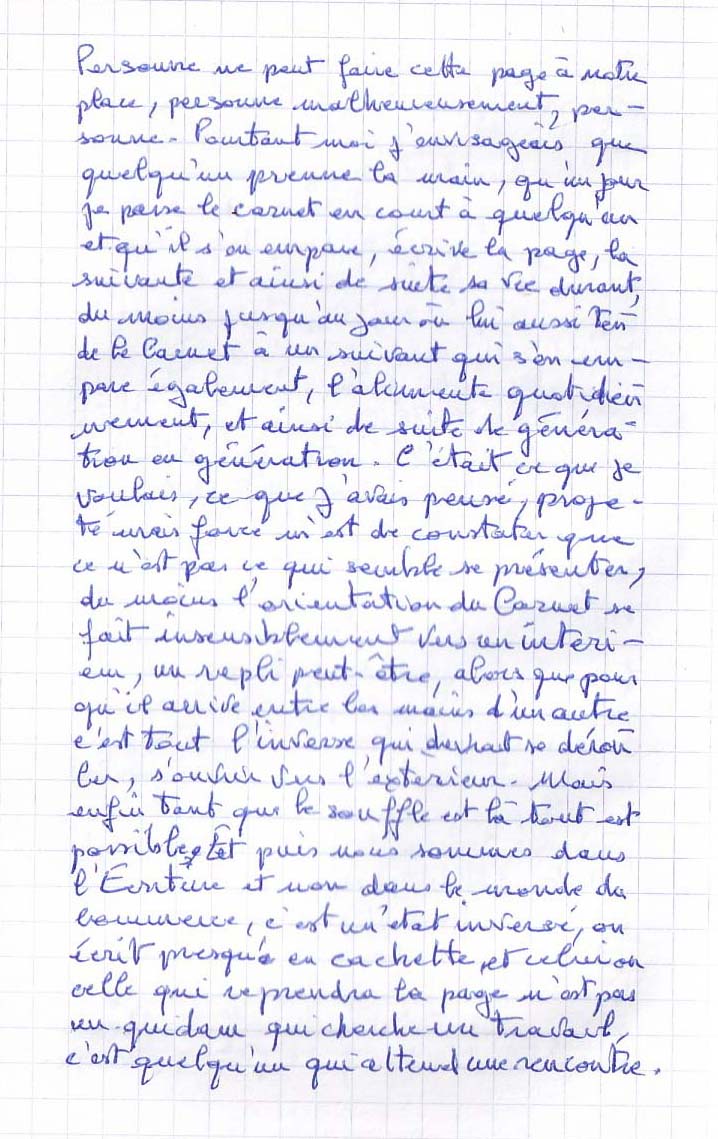 Personne ne peut faire cette page à notre
place, personne malheureusement, per-
sonne. Pourtant moi j'envisageais que
quelqu'un prenne la main, qu'un jour
je passe le carnet en court à quelqu'un
et qu'il s'en empare, écrive la page, la
suivante et ainsi de suite sa vie durant,
du moins jusqu'au jour où lui aussi ten
de le Carnet à un suivant qui s'en em-
pare également, l'alimente quotidien
nement, et ainsi de suite de généra-
tion en génération. C'était ce que je
voulais, ce que j'avais pensé, proje-
té mais force m'est de constater que
ce n'est pas ce qui semble se présenter,
du moins l'orientation du Carnet se
fait insensiblement vers un intéri-
eur, un repli peut-être, alors que pour
qu'il arrive entre les mains d'un autre
c'est tout l'inverse qui devrait se dérou
ler, s'ouvrir vers l'exterieur. Mais
enfin tant que le souffle est là tout est
possible, et puis nous sommes dans
l'Écriture et non dans le monde du
commerce, c'est un état inversé, on
écrit presqu'e en cachette et celui ou
celle qui reprendra la page n'est pas
un quidam qui cherche un travail,
c'est quelqu'un qui attend une rencontre.